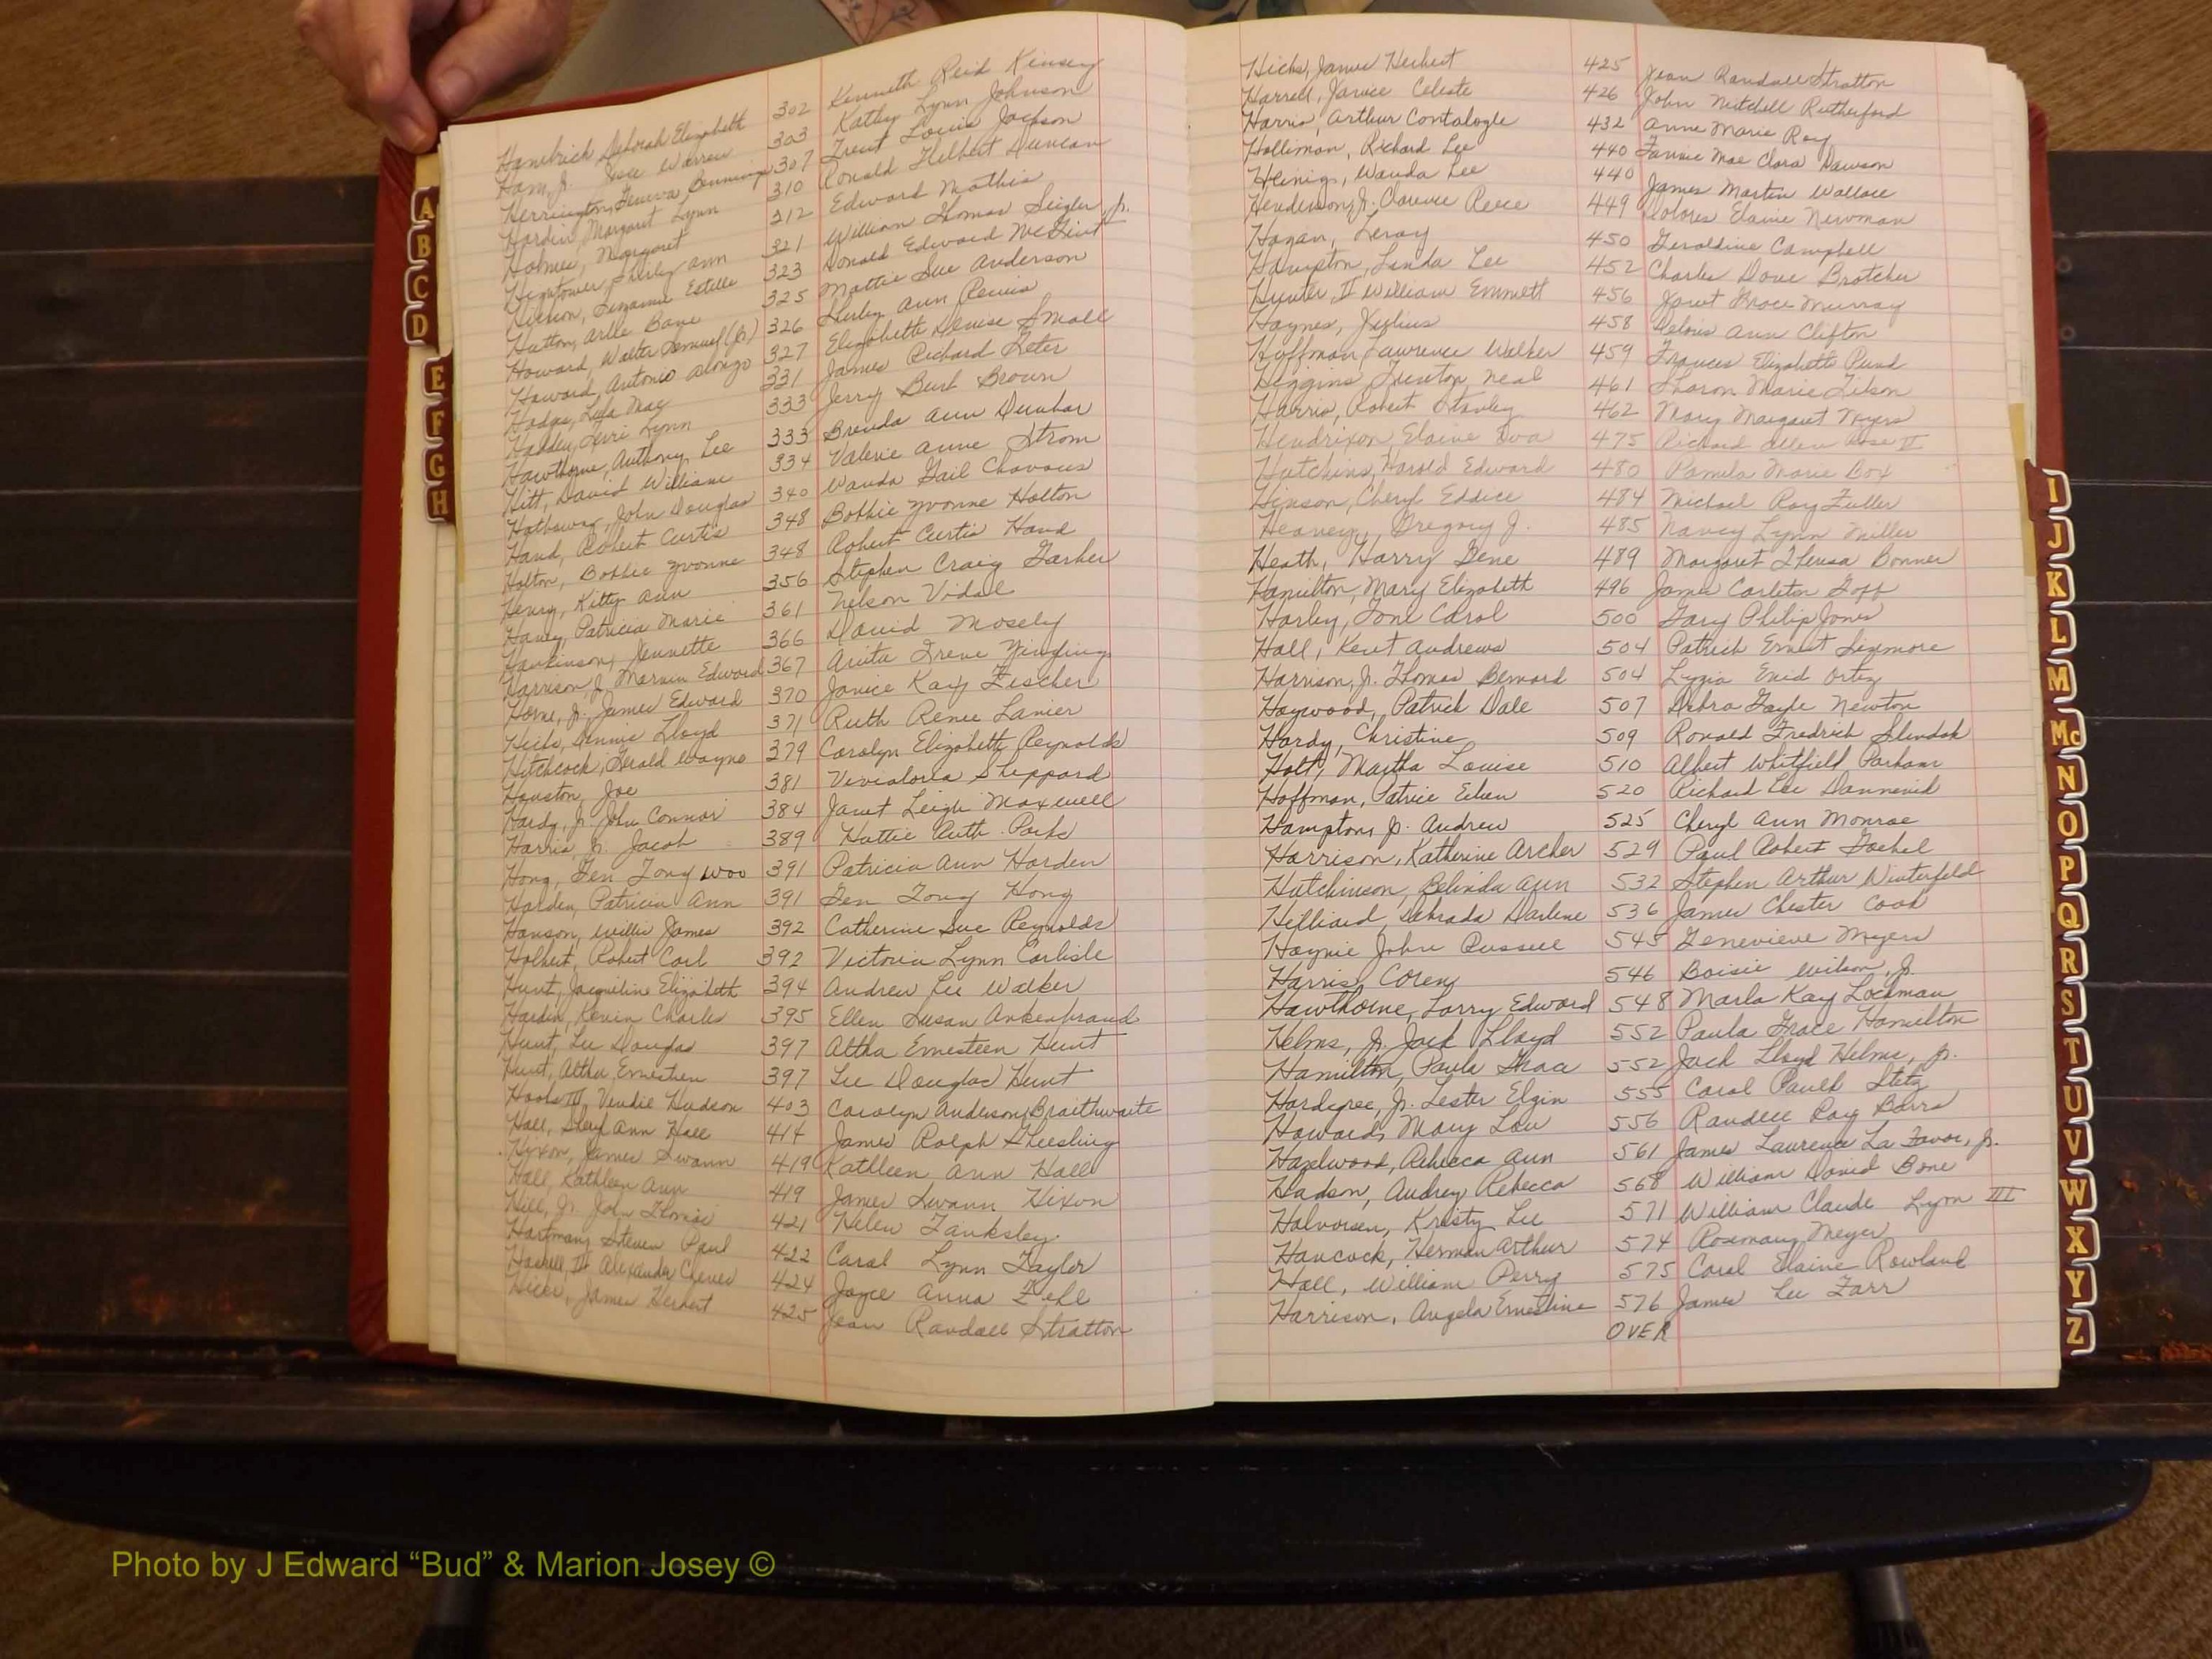 Hambrick, Deborah Elizabeth 302 Kenneth Reid Kinsey
Ham, Jr. Warren 303 Kathy Lynn Johnson
Herrington, Geneva Bennings 307 Trent Louis Jackson
Hardin, Margaret Lynn 310 Ronald Hulbert Duncan
Holmes, Margaret 312 Edward Mathis
Hightower, Shirley Ann 321 William Thomas Seigler, Jr.
Suzanne Estelle 323 Donald Edward
Hutton, Arlie Bane 325 Mattie Sue Anderson
Howard, Walter Lemuel (Jr) 326 Shirley Ann
Howard, Antonio Alonzo 327 Elizabeth Denise Small
Hodge, Lula Mae 331 James Richard Jeter
Hadden, Terri Lynn 333 Jerry Burk Brown
Hawthorne, Anthony Lee 333 Brenda Ann Dunbar
Hitt, David William 334 Valerie Anne Strom
Hathaway, John Douglas 340 Wanda Gail Chavous
Hand, Robert Curtis 348 Bobbie Yvonne Holton
Holton, Bobbie Yvonne 348 Robert Curtis Hand
Henry, Kitty Ann 356 Stephen Craig Garher
Patricia Marie 361 Nelson Vidal
Hankinson, Jennette 366 David Mosely
Harrison, Jr. Marvin Edward 367 Anita Irene
Horne, Jr. James Edward 370 Janice Kay Fischer
Hicks, Dennie Lloyd 371 Ruth Renee Lanier
Hitchcock, Gerald Wayne 379 Carolyn Elizabeth Reynolds
Houston, Joe 381 Vivialoria Sheppard
Hardy, Jr. John Connor 384 Janet Leigh Maxwell
Harris, Jr. Jacob 389 Hattie Ruth Parks
Hong, Gen Tong Woo 391 Patricia Ann Harden
Harden, Patricia Ann 391 Gen Tong Hong
Hanson, Willie James 392 Catherine Sue Reynolds
Holbert, Robert Carl 392 Victoria Lynn Carlisle
Hunt, Jacqueline Elizabeth 394 Andrew Lee Walker
Harden, Kevin Charles 395 Ellen Susan Ankenbrand
Hunt, Lee Douglas 397 Altha Ernesteen Hunt
Hunt, Altha Ernesteen 397 Lee Douglas Hunt
Hooks III, Vendie Hudson 403 Carolyn Anderson Braithwaite
Hall, Sheryl Ann Hall 414 James Ralph
Hixon, James Swann 419 Kathleen Ann Hall
Hall, Kathleen Ann 419 James Swann Hixon
Hill, Jr. John Thomas 421 Helen Tanksley
Hartman, Steven Paul 422 Carol Lynn Taylor
Haskell, III Alexander Cheves 424 Joyce Anna Ziehl
Hicks, James Herbert 425 Jean Randall Stratton
Hicks, James Herbert 425 Jean Randall Stratton
Harrell, Janice Celeste 426 John Mitchell Rutherford
Harris, Arthur Contalogle 432 Anne Marie Ray
Holliman, Richard Lee 440 Fannie Mae Clara Dawson
Heinig, Wanda Lee 440 James Martin Wallace
Henderson, Jr. Clarence Reece 449 Dolores Elaine Newman
Hogan, Leroy 450 Geraldine Campbell
Hampton, Linda Lee 452 Charles Dove Bratcher
Hunter, II William Emmett 456 Janet Grace Murray
Haynes, Julius 458 Deloris Ann Clifton
Hoffman, Lawrence Walker 459 Frances Elizabeth Pund
Higgins, Trenton Neal 461 Sharon Marie
Harris, Robert Stanley 462 Mary Margaret Myers
Hendrixon, Elaine Eva 475 Richard Allen Rose II
Hutchins, Harold Edward 480 Pamela Marie Box
Hinson, Cheryl Eddice 484 Michael Ray Fuller
Heavey, Gregory J. 485 Nancy Lynn Miller
Heath, Harry Gene 489 Margaret Theresa Bonner
Hamilton, Mary Elizabeth 496 James Carleton Goff
Harley, Toni Carol 500 Gary Philip Jones
Hall, Kent Andrews 504 Patrick Ernest Sizemore
Harrison, Jr. Thomas Bernard 504 Lygia Enid Ortiz
Haywood, Patrick Dale 507 Debra Gayle Newton
Hardy, Christine 509 Ronald Fredrich Slendak
Holt, Martha Louise 510 Albert Whitfield Parham
Hoffman, Patrice Eileen 520 Richard Lee
Hampton, Jr. Andrew 525 Cheryl Ann Monroe
Harrison, Katherine Archer 529 Paul Robert Goehel
Hutchinson, Belinda Ann 532 Stephen Arthur Winterfeld
Hilliard, Debrada Darlene 536 James Chester Cook
Haynie John Russell 545 Genevieve Myers
Harris, Corey 546 Boisie Wilson, Jr.
Hawthorne, Larry Edward 548 Marla Kay Lockman
Helms, Jr. Jack Lloyd 552 Paula Grace Hamilton
Hamilton, Paula Grace 552 Jack Lloyd Helms, Jr.
Hardegree, Jr. Lester Elgin 555 Carol Paulk Stitz
Howard, Mary Lou 556 Randell Ray Barrs
Hazelwood, Rebecca Ann 561 James Laurence La Favor, Jr.
Hudson, Audrey Rebecca 568 William David Bone
Halvorsen, Kristy Lee 571 William Claude Lyon III
Hancock, Herman Arthur 574 Rosemary Meyer
Hall, William Perry 575 Carol Elaine Rowland
Harrison, Angela Ernestine 576 James Lee Farr
OVER
A
B
C
D
E
F
G
H
I
J
K
L
M
Mc
N
O
P
Q
R
S
T
U
V
W
X
Y
Z
Photo by J Edward “Bud” & Marion Josey ©